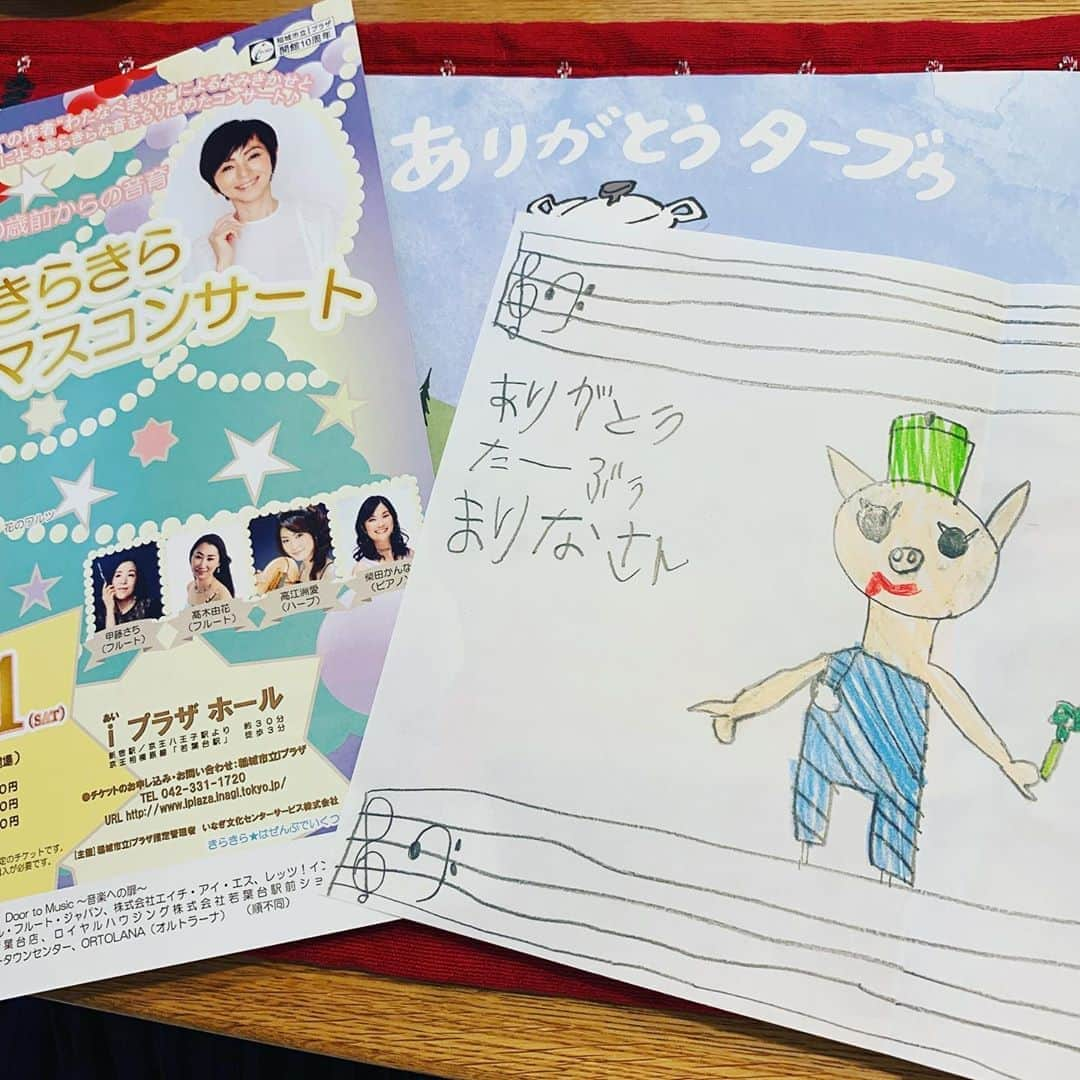 稲城市立iプラザ
開館10周年
の作者"わたなべまりな"によるよみきかせと
によるきらきらな音をちりばめたコンサート♪
歳前からの音育
きらきら
マスコンサート
花のワルツ
甲藤さち
(フルート)
高木由花
(フルート)
高江洲愛
(ハープ)
柴田かんな
(ピアノ)
1(SAT)
あい
i プラザ ホール
新宿駅/京王八王子駅より 約30分
京王相模原線「若葉台駅」 徒歩3分
◎チケットのお申し込み・お問い合わせ:稲城市立iプラザ
TEL 042-331-1720
URL http://www.iplaza.inagi.tokyo.jp/
【主催】稲城市立iプラザ指定管理者 いなぎ文化センターサービス株式会社
きらきら★はぜんぶでいくつ
場)
0円
0円
0円
定のチケットです。
入が必要です。
Door to Music ～音楽への扉～
ル・フルート・ジャパン、株式会社エイチ・アイ・エス、レッツ!イン
葉台店、ロイヤルハウジング株式会社若葉台駅前ショ
ータウンセンター、ORTOLANA(オルトラーナ) (順不同)
ありがとうターブゥ
ありがとう
たーぶぅ
まりなさん